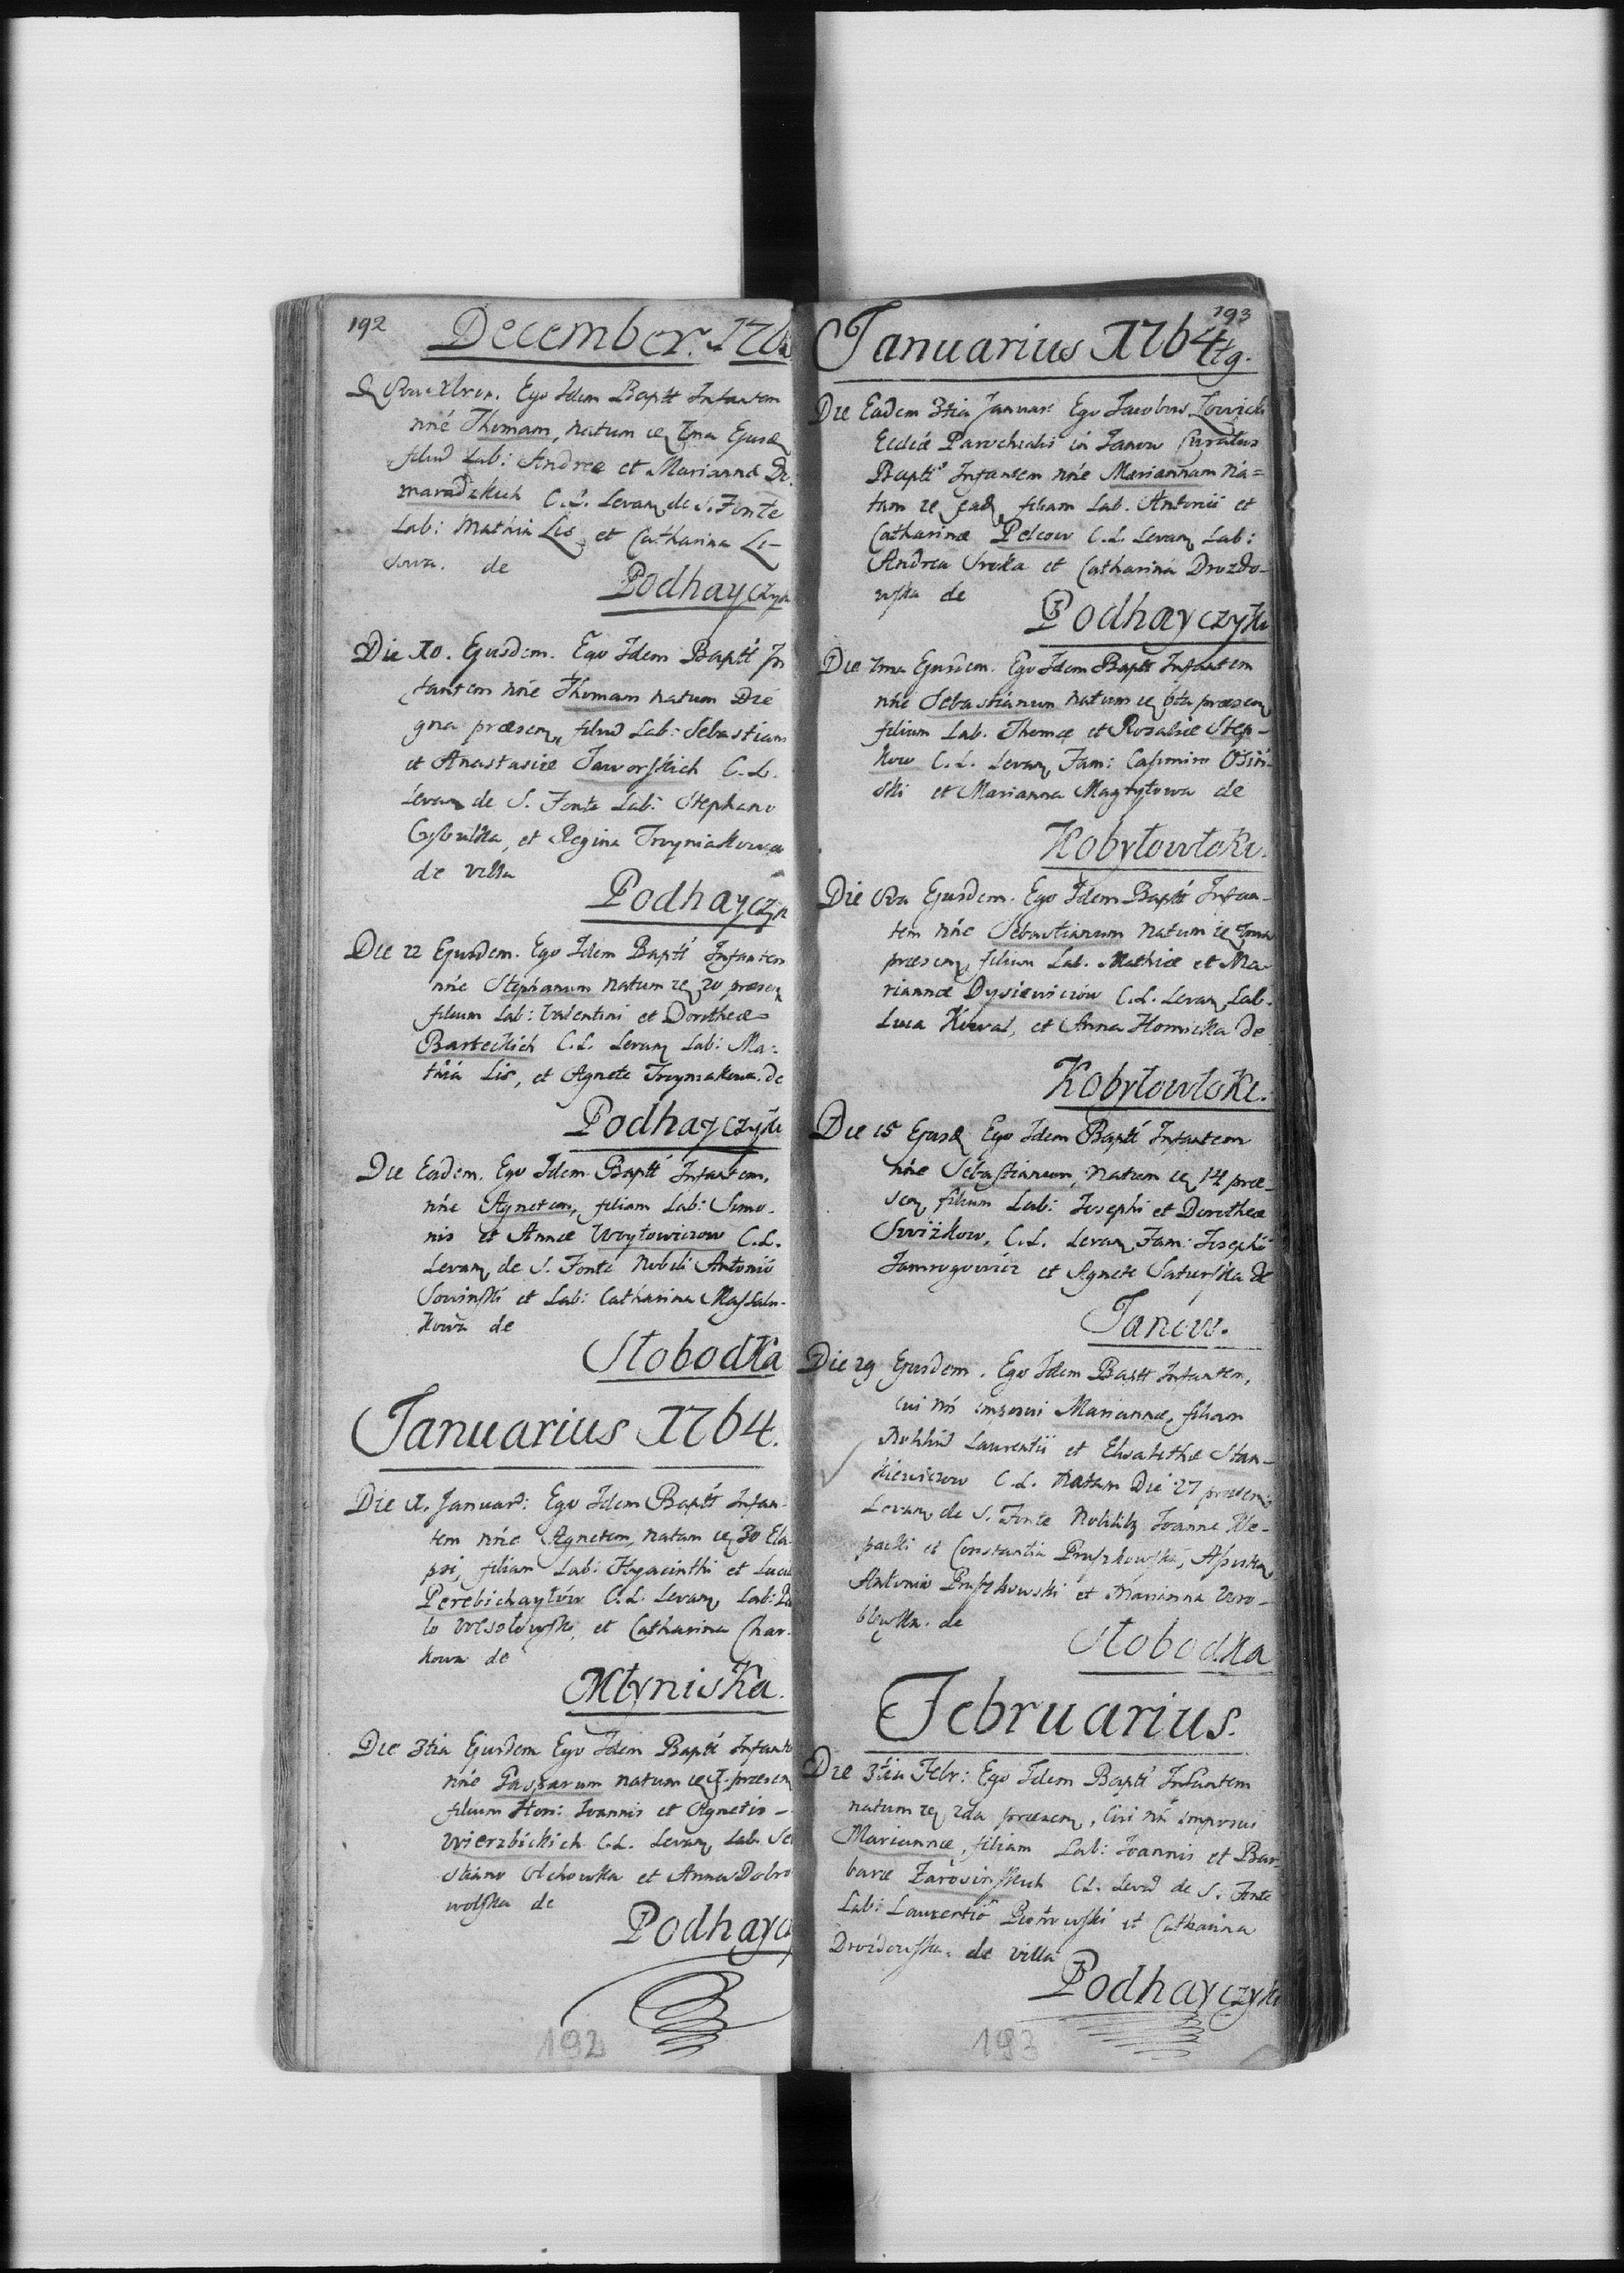 192
December. 176
Xbris. Ego Idem Baptt Infantem
nñe Thomam, natum 7ma Ejusd
filiu Lab: Andreæ et Mariannæ Do
maradzkich C.L. Levan de S. Fonte
Lab: Mathia Lis, et Catharina Li-
sowa. de
Podhayczyk
Die 10. Ejusdem. Ego Idem Baptt In
fantem nñe Thomam natum Die
9na præsen, filiu Lab: Sebastiani
et Anastasiæ Jaworskich C.L.
Levan de S. Fonte Lab: Stephano
Cybulka, et Regina Troyniakowa
de villa
Podhayczyk
Die 22 Ejusdem. Ego Idem Baptt Infantem
nñe Stephanum natum 20 præsen
filium Lab: Valentini et Dorotheæ
Barteckich C.L. Levan Lab: Ma-
thia Lis, et Agnete Troyniakowa. de
Podhayczyk
Die Eadem. Ego Idem Baptt Infantem,
nñe Agnetem, filiam Lab: Simo-
nis et Annæ Woytowiczow C.L.
Levan de S. Fonte Nobili Antonio
Sowinski et Lab: Catharina Massalu-
kowa de
Słobodka
Januarius 1764.
Die 1. Januar: Ego Idem Baptt Infan-
tem nñe Agnetem, natam 30 Ela-
psi, filiam Lab: Hyacinthi et Luciæ
Perebichaytów C.L. Levan Lab:
lo Wesołowski, et Catharina Char-
kowa de
Młyniska.
Die 3tia Ejusdem Ego Idem Baptt Infante
nñe Gasparum natum præsen
filium Hon: Joannis et Agnetis -
Wierzbickich C.L. Levan Lab. Se
stiano Olchowka et Anna Dobro
wolska de
Podhayc
192
193
Januarius 1764
Die Eadem 3tia Januar: Ego Jacobus Łowicki
Eccliæ Parochialis in Janow Curatus
Baptt Infantem nñe Mariannam na=
tam ead, filiam Lab. Antonii et
Catharinæ Pelcow C.L. Levan Lab:
Andrea Sroka et Catharina Drozdo-
wska de
Podhayczyki
Die 7ma Ejusdem. Ego Idem Baptt Infantem
nñe Sebastianum natum 6ta præsen
filium Lab. Thomæ et Rosaliæ Step-
kow C.L. Levan Fam: Casimiro Osin-
ski et Marianna Magrytowa de
Kobyłowłoki.
Die 8va Ejusdem. Ego Idem Baptt Infan-
tem nñe Sebastianum natum 7ma
præsen, filium Lab. Mathiæ et Ma-
riannæ Dysiewiczów C.L. Levan Lab.
Luca Kowal, et Anna Homicka de
Kobyłowłoki.
Die 15 Ejusd Ego Idem Baptt Infantem
nñe Sebastianum, natum 14 præ-
sen, filium Lab: Josephi et Dorotheæ
Swiżkow, C.L. Levan Fam: Josepho
Jamrogowicz et Agnete Saturska de
Janów.
Die 29 Ejusdem. Ego Idem Baptt Infantem,
cui nñ imposui Mariannæ, filiam
Nobiliu Laurentii et Elisabethæ Stan-
kiewiczow C.L. natam Die 27 præsen
Levan de S. Fonte Nobilib Joanne Kle-
packi et Constantia Pruszkowska, Assisten
Antonio Pruszkowski et Marianna Wro-
blewska. de
Słobodka
Februarius.
Die 3tia Febr: Ego Idem Baptt Infantem
natam 2da præsen, cui nñ imposui
Mariannæ, filiam Lab: Joannis et Bar-
baræ Zarosinskich CL. Levan de S. Fonte
Lab: Laurentio Piotrowski et Catharina
Drozdowska. de villa
Podhayczyki
193